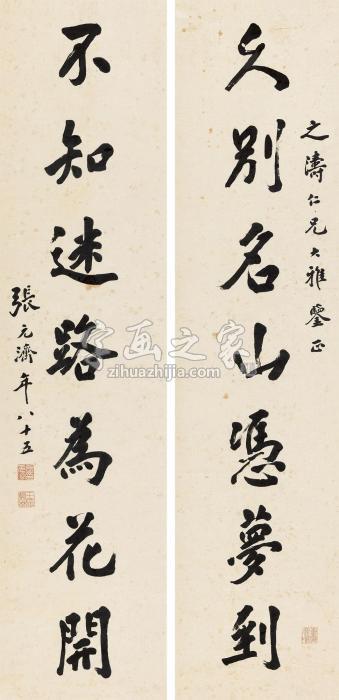 之濤仁兄大雅鑒正
久別名山憑夢到
不知迷路為花開
張元濟年八十五
字画之家
zihuazhijia.com